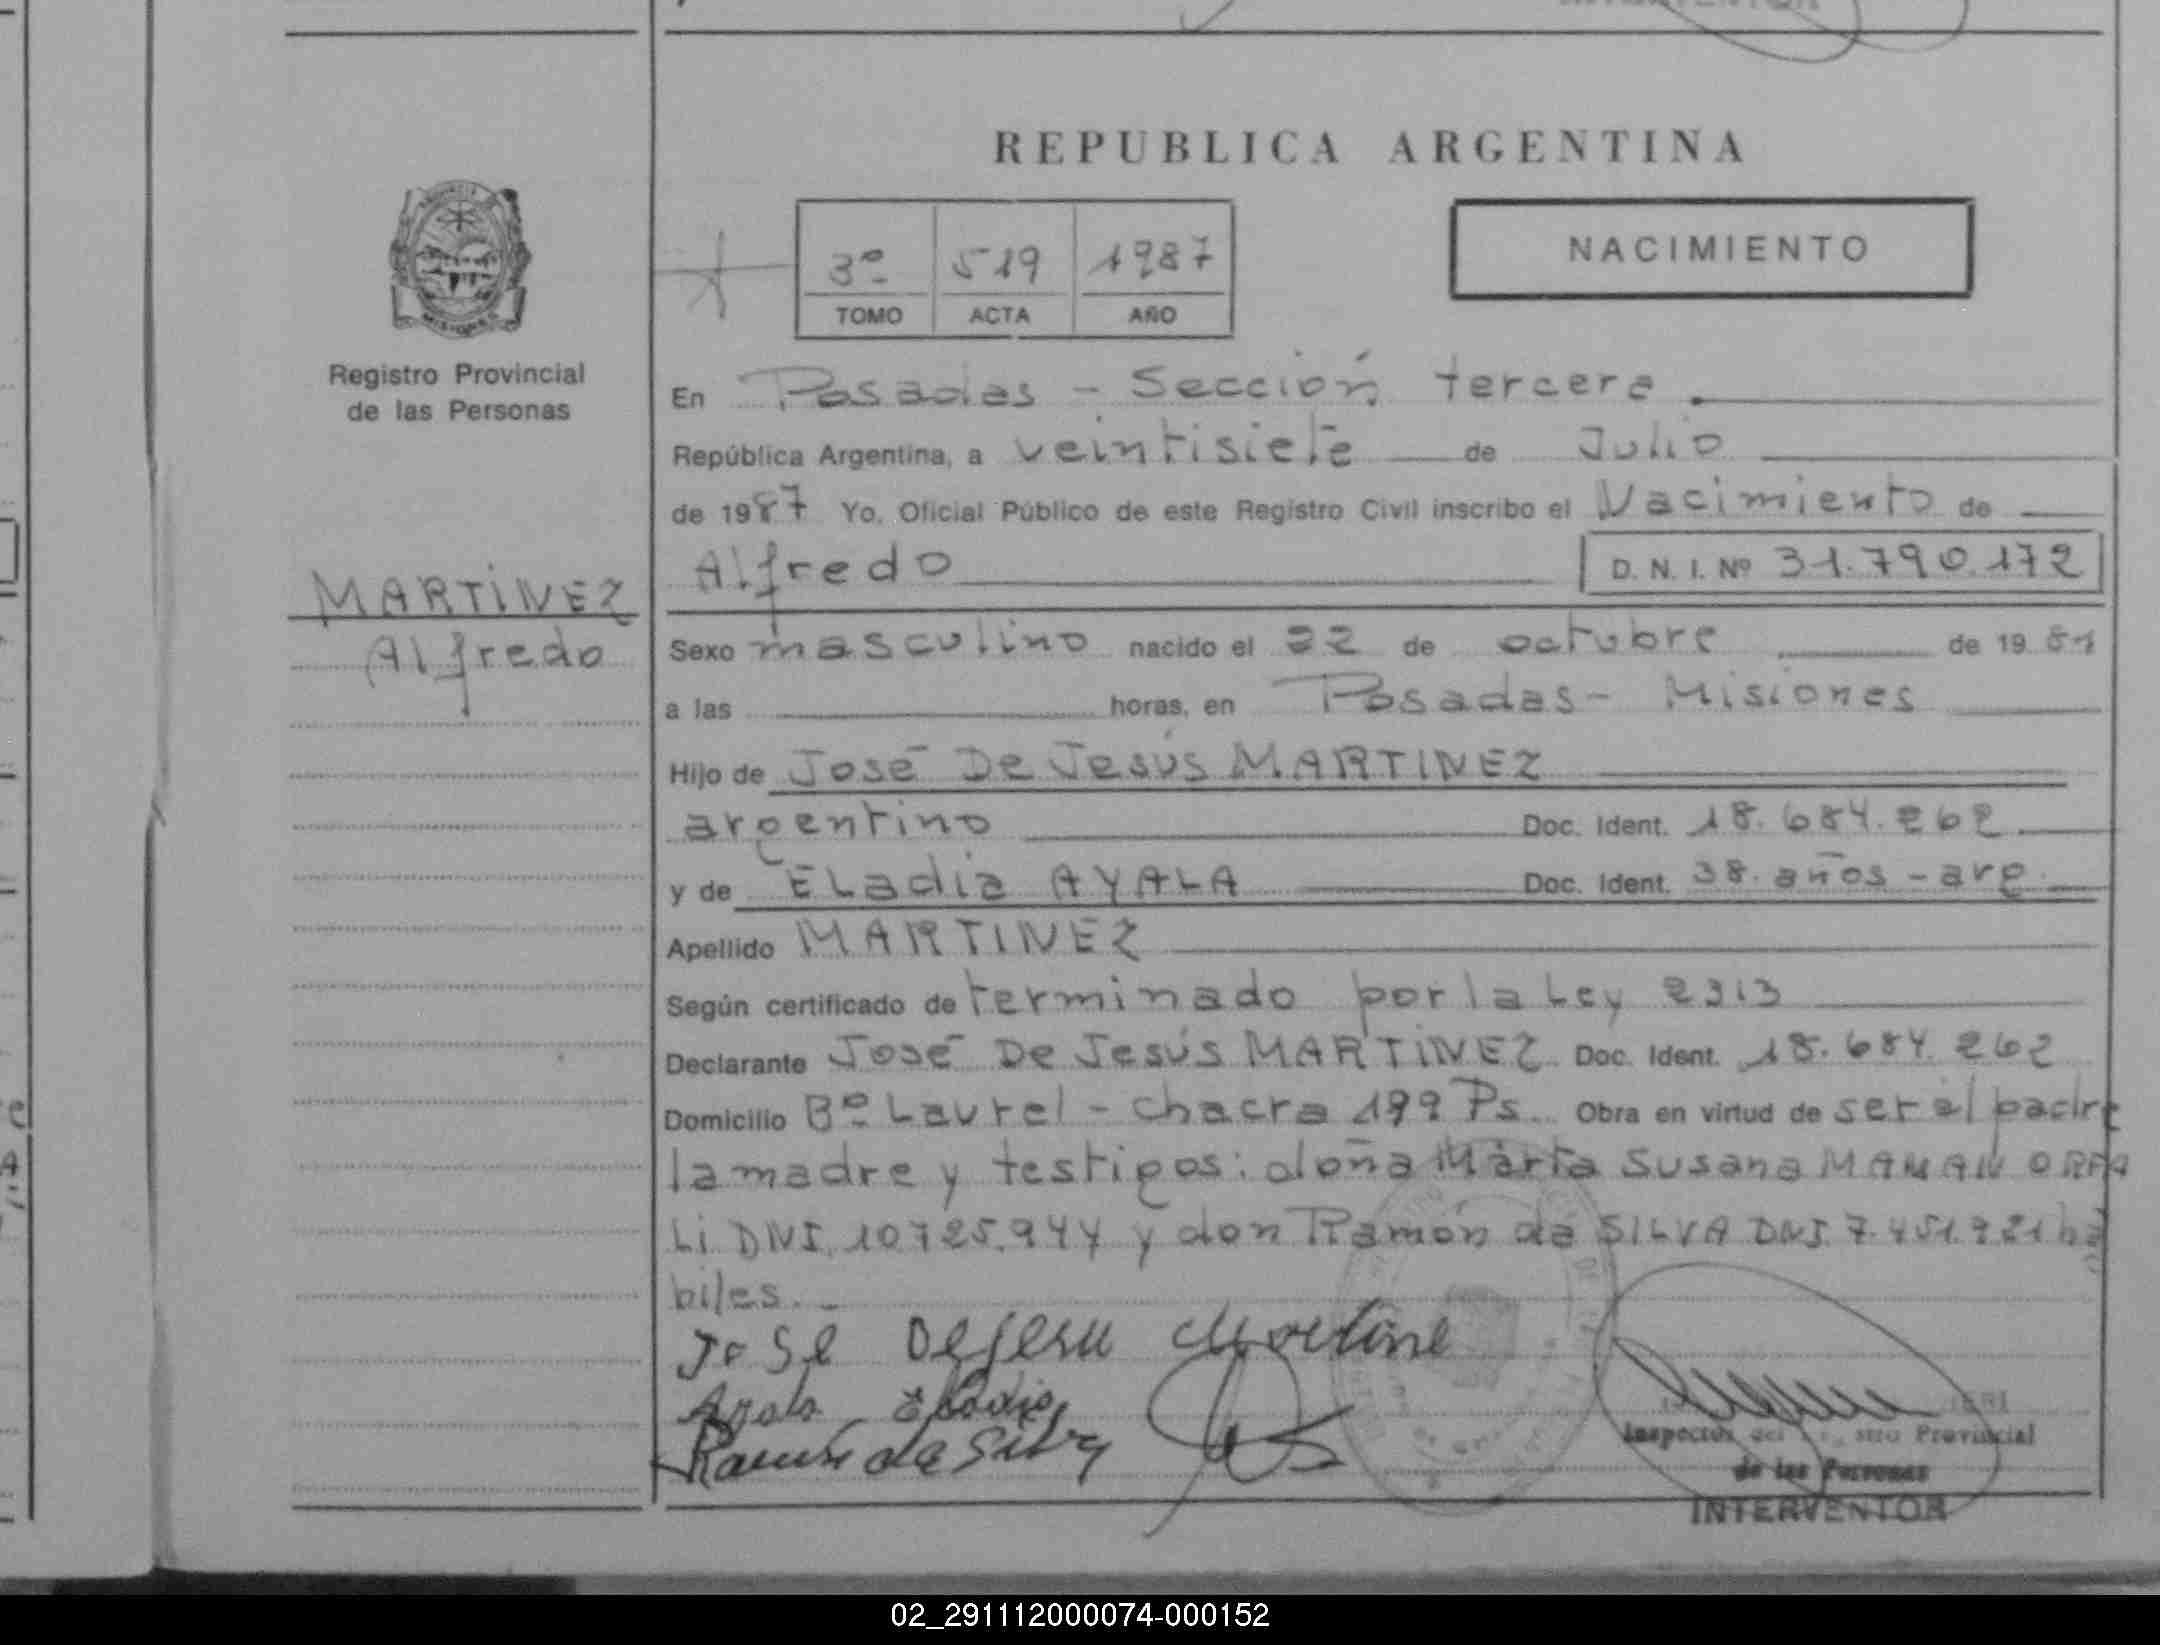 REPUBLICA ARGENTINA
NACIMIENTO
3º 519 1987
TOMO ACTA AÑO
Registro Provincial
de las Personas
MARTINEZ
Alfredo
En Posadas - Sección tercera
República Argentina, a veintisiete de Julio
de 1987 Yo, Oficial Público de este Registro Civil inscribo el Nacimiento de
Alfredo D. N. I. Nº 31.790.172
Sexo masculino nacido el 22 de octubre de 1981
a las horas, en Posadas - Misiones
Hijo de José De Jesús MARTINEZ
argentino Doc. Ident. 18.684.262
y de ELadia AYALA Doc. Ident. 38 años - arg.
Apellido MARTINEZ
Según certificado de terminado por la Ley 2313
Declarante José De Jesús MARTINEZ Doc. Ident. 18.684.262
Domicilio Bº Laurel - chacra 199 Ps. Obra en virtud de ser el padre
la madre y testigos: doña Marta Susana MAMAN
Li DNI. 10725.944 y don Ramón da SILVA DNI. 7.451.921 há
biles.-
José Dejesu Martine
Ayala Eladia
Ramón da Silva
Inspector del Registro Provincial
de las Personas
INTERVENTOR
02_291112000074-000152